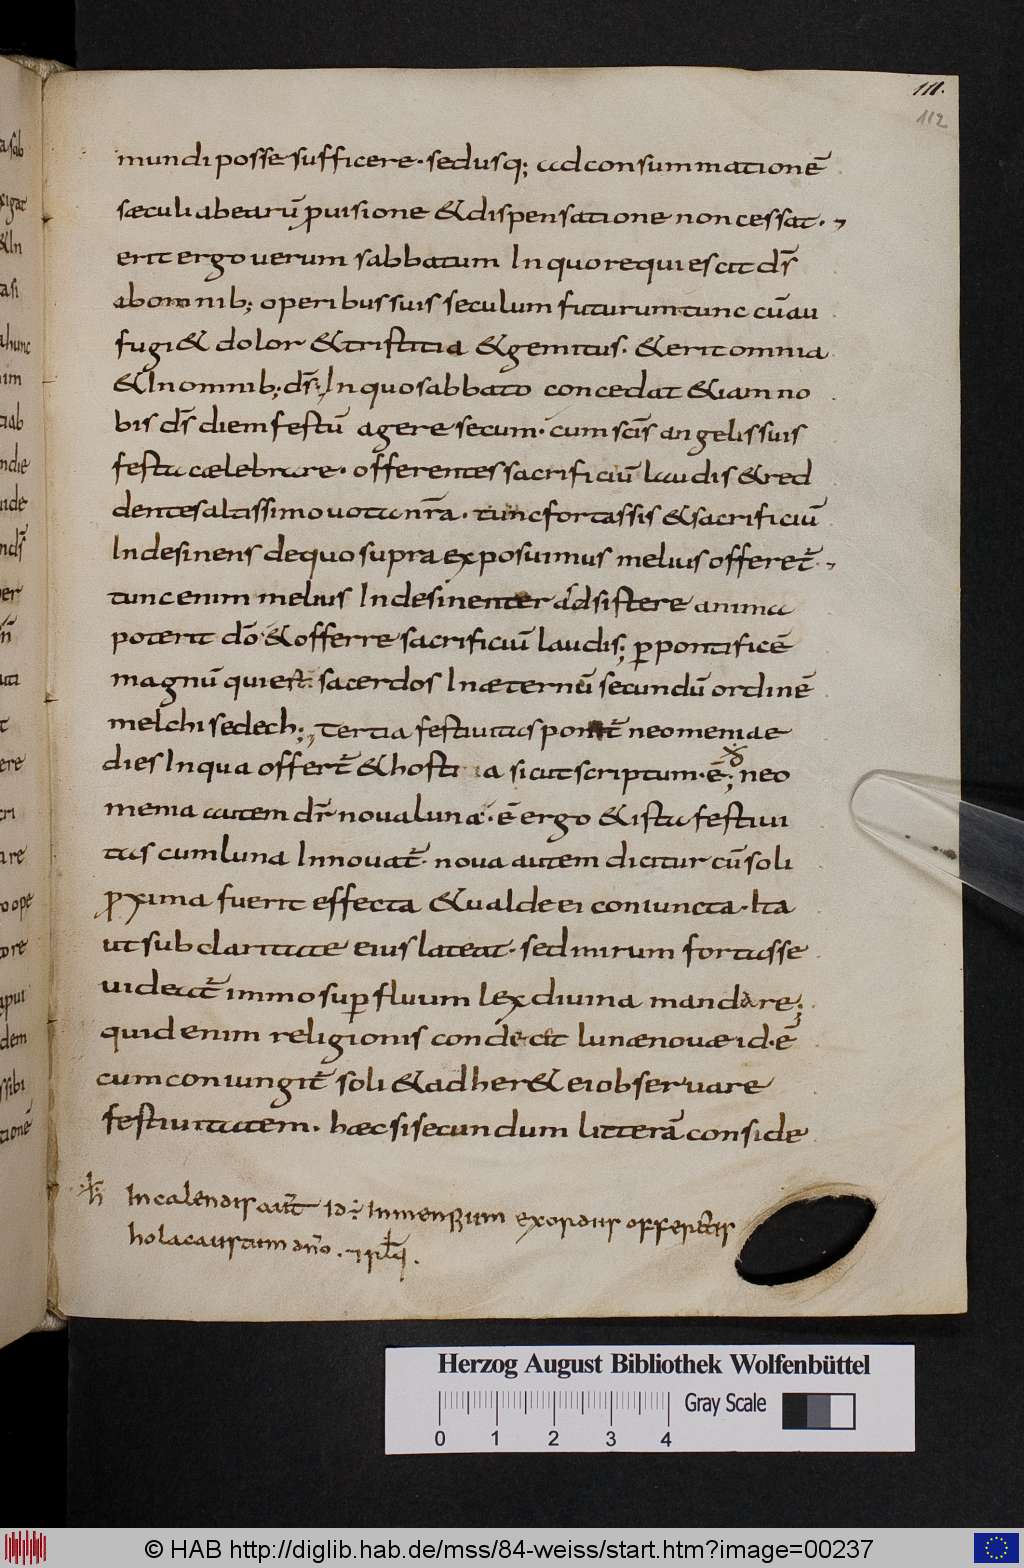 111.
112
mundi posse sufficere· sedusq; ad consummationē
sæculi abearū ꝓuisione & dispensatione non cessat·,
erit ergo uerum sabbatum In quo requiescit dš
ab omnib; operibus suis seculum futurum tunc cū au
fugi& dolor & tristitia & gemitus· & erit omnia
& In omnib; dš; In quo sabbato concedat & iam no
bis dš diem festū agere secum· cum scīs angelis suis
festa cælebrare· offerentes sacrificiū laudis & red
dentes altissimo uota nr̄a· tunc fortassis & sacrificiū
Indesinens de quo supra exposuimus melius offeret̄·,
tunc enim melius Indesinenter adsistere anima
poterit dō & offerre sacrificiū laudis; ꝑ pontificē
magnū qui est sacerdos In æternū secundū ordinē
melchisedech;, Tertia festiuitas neomeniae
dies In qua offert̄ & hostia sicut scriptum·ē; neo
menia autem dr̄ noua luna· ē ergo & ista festiui
tas cum luna Innouat̄· noua autem dicitur cū soli
ꝓxima fuerit effecta & ualde ei coniuncta· Ita
ut sub claritate eius lateat· sed mirum fortasse
uideat̄ immo suꝑfluum lex diuina mandare;
quid enim religionis condecit lunæ nouæ id·ē
cum coniungit̄ soli & adher& ei obseruare
festiuitatem· hæc si secundum litterā conside
ħ In calendis aut̄ id; In mensium exordiis offeretis
holacaustum dn̄o·
Herzog August Bibliothek Wolfenbüttel
Gray Scale
0 1 2 3 4
© HAB http://diglib.hab.de/mss/84-weiss/start.htm?image=00237